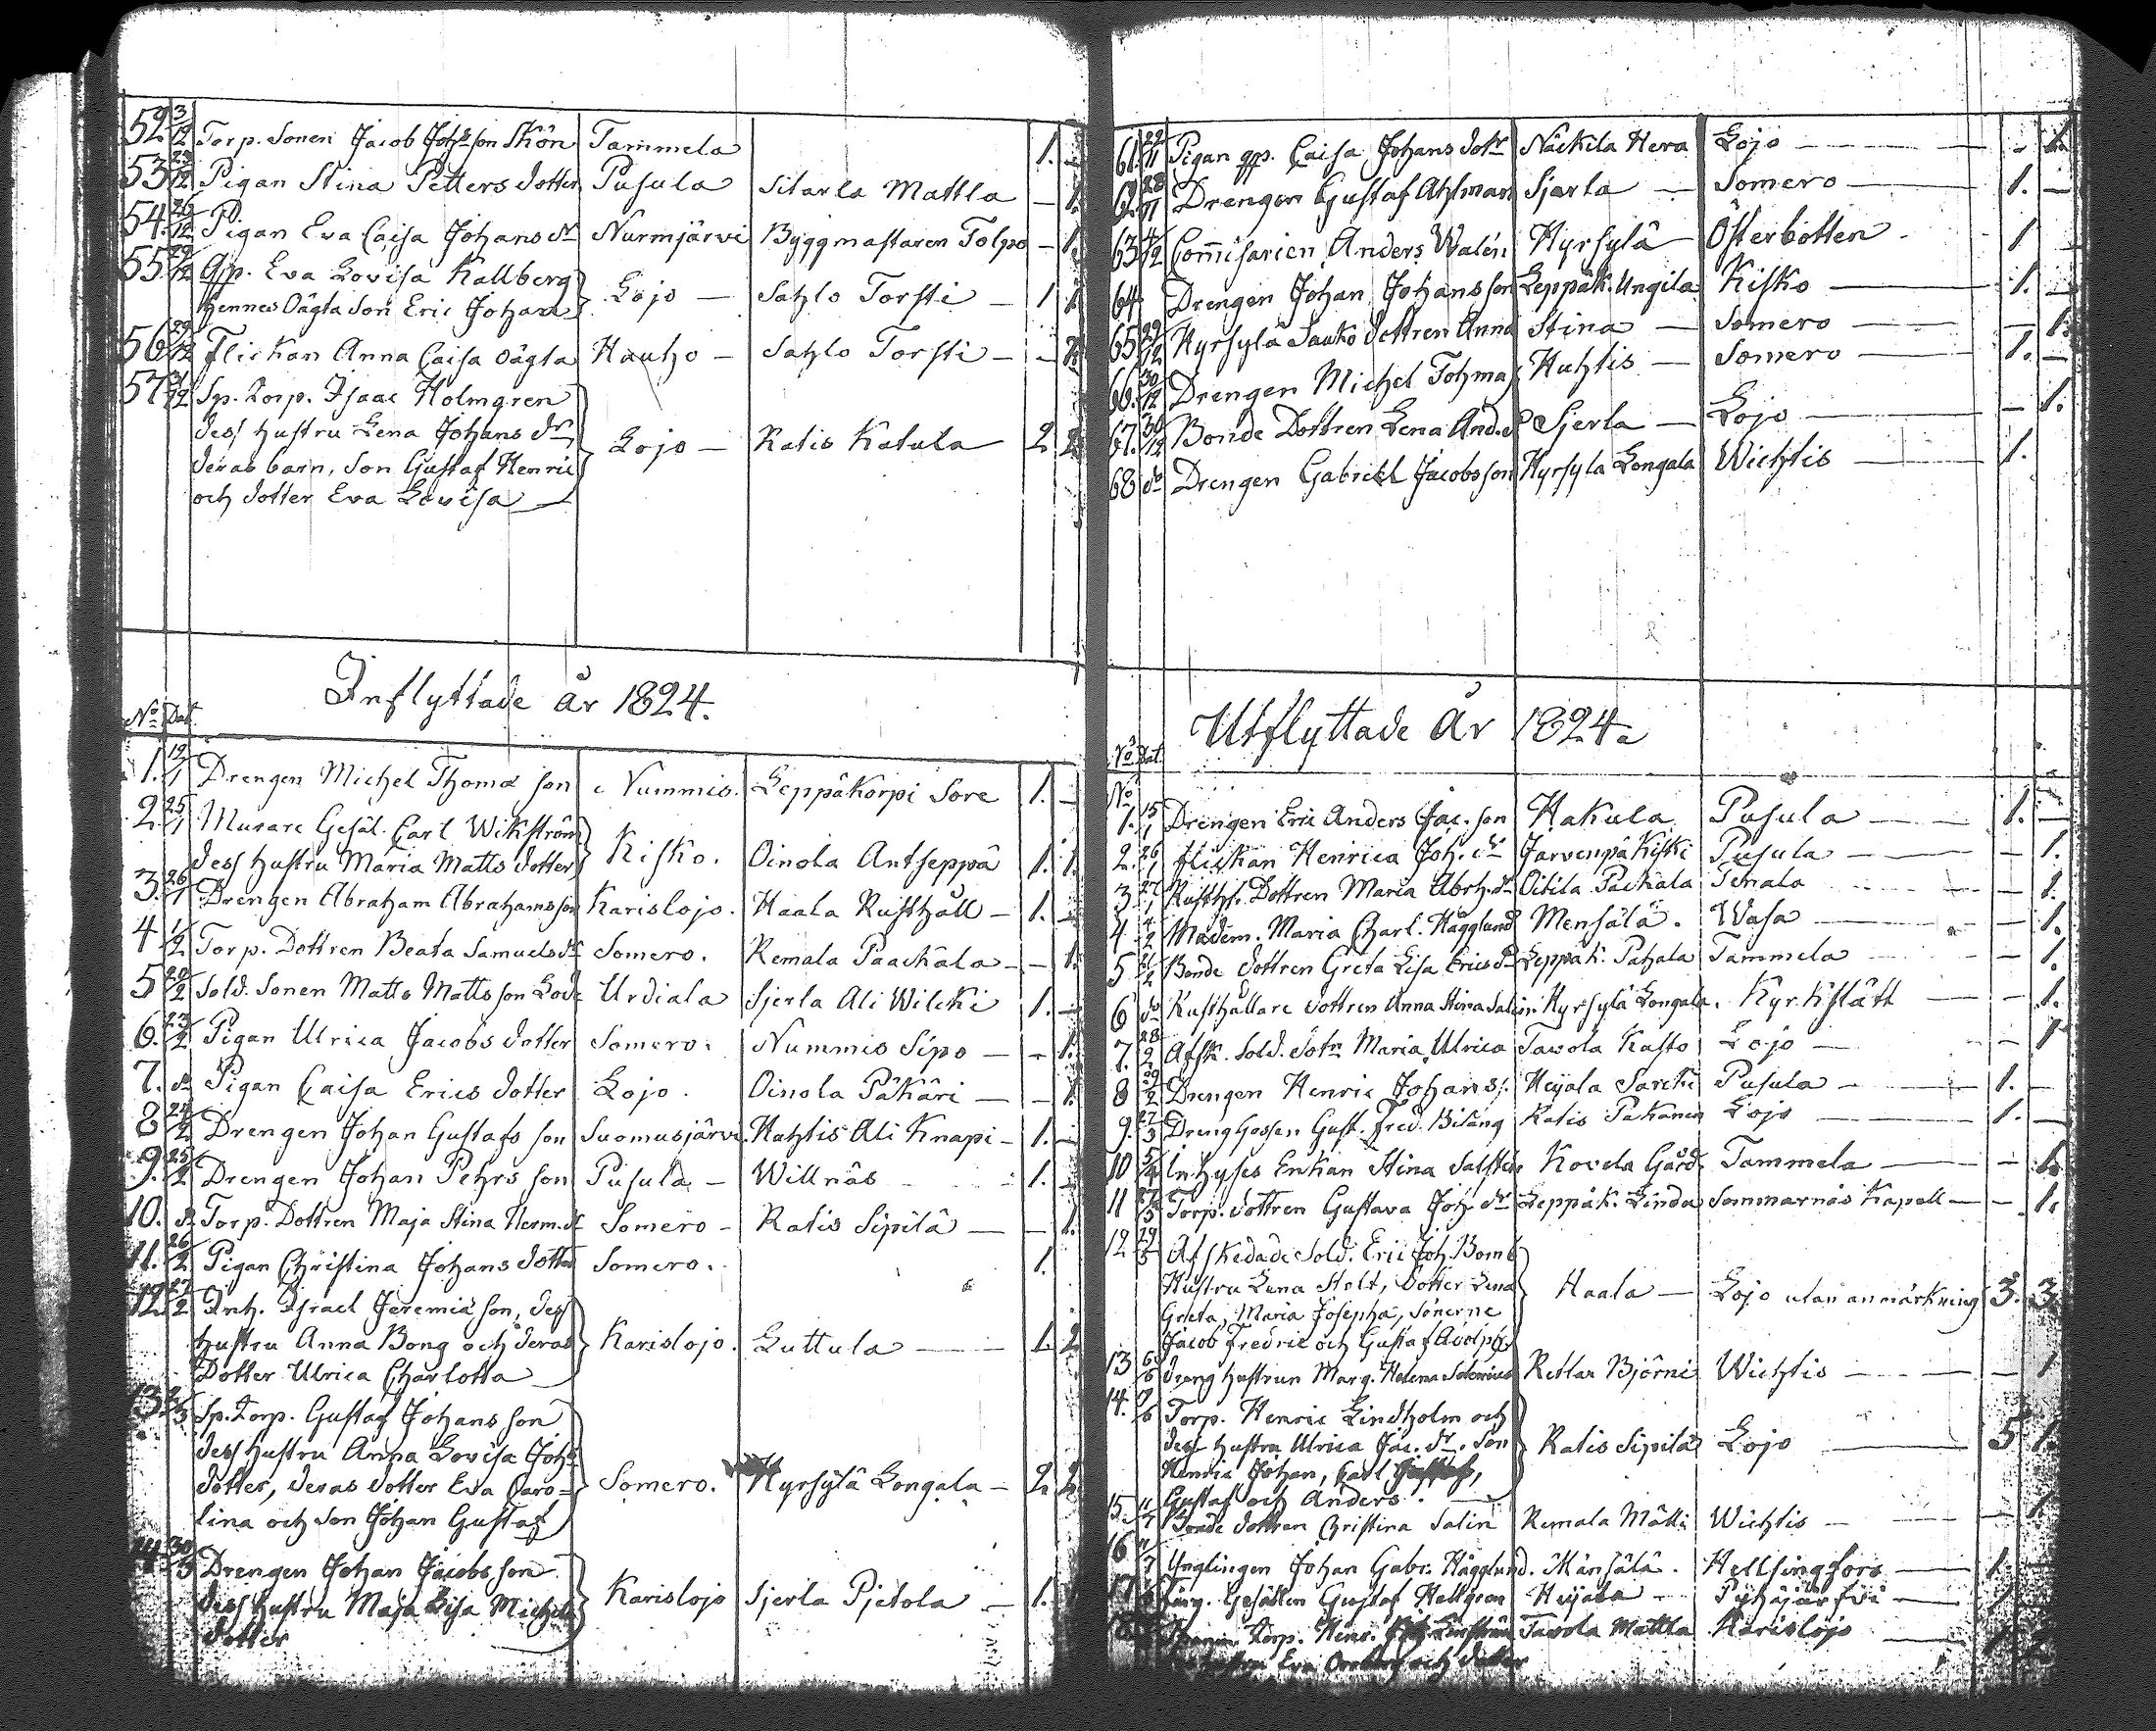 52 3/12 Torp. Sonen Jacob Johsson Skön Tammela 1. –
53 23/12 Pigan Stina Petters dotter Pusula Sitarla Mattla – 1.
54. 26/12 Pigan Eva Caisa Johans dr Nurmjärvi Byggmastaren Tolpo – 1.
55. 29/12 Qp. Eva Lovisa Kallberg
hennes Oägta Son Eric Johan } Lojo – Sahlo Torsti – 1 1.
56 29/12 Flickan Anna Caisa oägta Hauho – Sahlo Torsti – – 1.
57 31/12 Sp. Torp. Isaac Holmgren
dess hustru Lena Johans dr
deras barn, son Gustaf Henric } Lojo – Ratis Katula 2. 2.
och dotter Eva Lovisa
Inflyttade år 1824.
No Dat.
1. 19/1 Drengen Michel Thomæ son Nummis. Leppäkorpi Sore 1. –
2. 25/1 Murare Gesäl. Carl Wikström
dess hustru Maria Matts dotter } Kisko. Oinola Antseppä 1. 1.
3. 26/1 Drengen Abraham Abrahamsson Karislojo. Haala Rusthåll – 1. –
4 1/2 Torp. Dottren Beata Samuelsdr Somero. Remala Paackala – – 1.
5 20/2 Sold. Sonen Matts Mattsson Urdiala Sjerla Ali Wilcki 1. –
6. 23/2 Pigan Ulrica Jacobs dotter Somero. Nummis Sipo – – 1.
7. do Pigan Caisa Erics dotter Lojo. Oinola Päkäri – – 1.
8 24/2 Drengen Johan Gustafs son Suomusjärvi. Huhtis Ali Knapi – 1. –
9. 25/2 Drengen Johan Pehrs son Pusula – Willnäs 1. –
10. do Torp. Dottren Maja Stina Herm. dr Somero – Ratis Sipilä – – 1.
11. 26/2 Pigan Christina Johans dotter Somero. 1.
12. 27/2 Inh. Israel Jeremiæ son, dess
hustru Anna Bong och deras } Karislojo. Luttula 1. 2.
Dotter Ulrica Charlotta
13. Sp. Torp. Gustaf Johans son
dess hustru Anna Lovisa Johs
dotter, deras dotter Eva Caro- } Somero. Hyrsylä Longala – 2. 2.
lina och son Johan Gustaf
14. 30/3 Drengen Johan Jacobs son
dess hustru Maja Lisa Michels } Karislojo Sjerla Pjetola – 1.
dotter
61. 22/11 Pigan qp. Caisa Johans dotr Näckila Hera Lojo – – 1.
62. 28/11 Drengen Gustaf Ahlman Sjerla – Somero – 1. –
63 4/12 Commisarien Anders Walén Hyrsylä – Österbotten 1 –
64 Drengen Johan Johansson Leppäk. Ungila Kisko – 1. –
65 29/12 Hyrsylä Sauko dottren Anna Stina – Somero – – 1.
66. 30/12 Drengen Michel Tohma Huhtis – Somero – 1. –
67. 30/12 Bonde Dottren Lena And. d Sjerla – Lojo – – 1.
68 do Drengen Gabriel Jacobsson Hyrsyla Longala Wichtis – 1.
Utflyttade År 1824.
No Dat.
No
1. 15/1 Drengen Eric Anders Jac. son Hakula Pusula – 1. –
2. 26/1 Flickan Henrica Joh. dr Jarvenpä Kiski Pusula – – 1.
3 27/1 Rusth. Dottren Maria Abrh. dr Oitila Packala Tenala – 1.
4 4/2 Madem. Maria Charl. Hägglund Mensälä. Wasa – – 1.
5 21/2 Bonde dottren Greta Lisa Erics dr Leppäk. Pahala Tammela – – 1.
6 do Rusthållare dottren Anna Stina Salin Hyrsylä Longala. Kyrkslätt – – 1.
7. 28/2 Afsk. Sold. dotr Maria Ulrica Tavola Kusto Lojo – – 1
8 29/2 Drengen Henric Johans s. Heijala Sarcki Pusula – 1. –
9. 27/3 Dreng Gossen Gust. Fred. Bisang Ratis Pakanen Lojo – 1. –
10 5/4 Inhyses Enkan Stina Salsten Kovela Gård Tammela – – 1.
11 Torp. dottren Gustava Joh dr Leppäk. Linda Sommarnäs Kapell – – 1.
12 29/5 Afskedade Sold. Eric Joh. Bomb
Hustru Lena Stolt, Dotter Lena
Greta, Maria Josepha, Sönerne } Haala – Lojo utan anmärkning 3. 3.
Jacob Fredric och Gustaf Adolph
13 6/6 Dreng hustrun Marg. Helena Retlax Björni Wichtis – – 1
14. Torp. Henric Lindholm och
dess hustru Ulrica Jac. dr. Son } Ratis Sipilä Lojo – 5 1.
Henric Johan, Carl
Gustaf och Anders.
15. Bonde dottren Christina Salin Remala Mätti Wichtis – 1
16 Ynglingen Johan Gabr. Hägglund. Mänsälä. Hellsingfors – 1.
17 Gesällen Gustaf Hellgren Heijala – Pyhäjärfvi – 1
18 Torp. Henr. Tavola Mattla Karislojo – 1 2
Eva och dotter